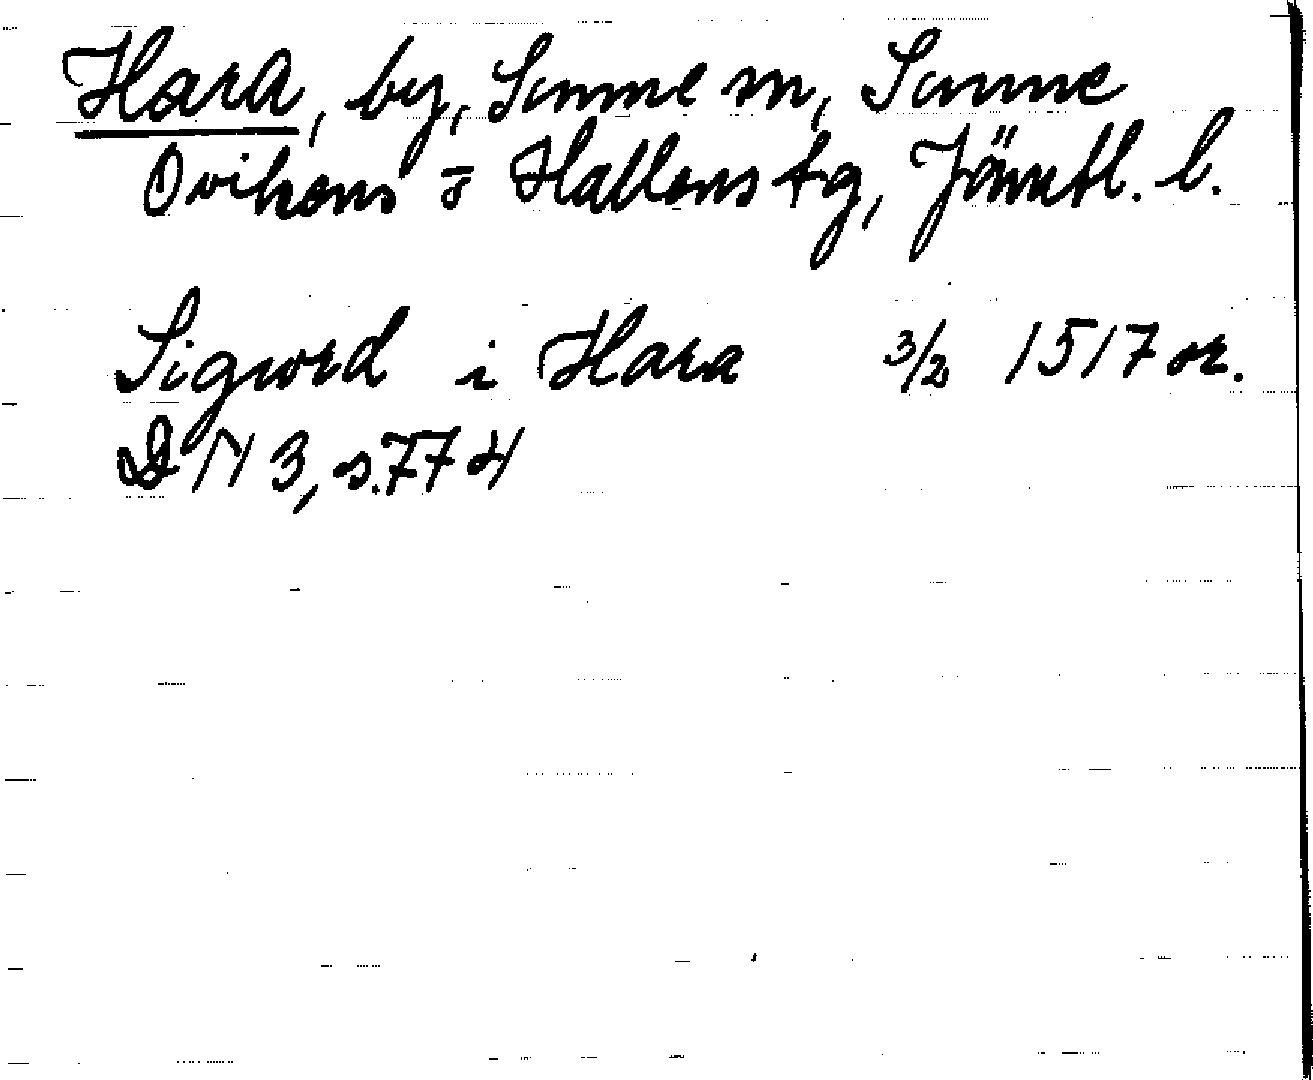 Hara, by, Sunne sn, Sunne
Ovikens o Hallens tg, Jämtl. l.
Sigurd i Hara 3/2 1517 or.
DN 3, s.774